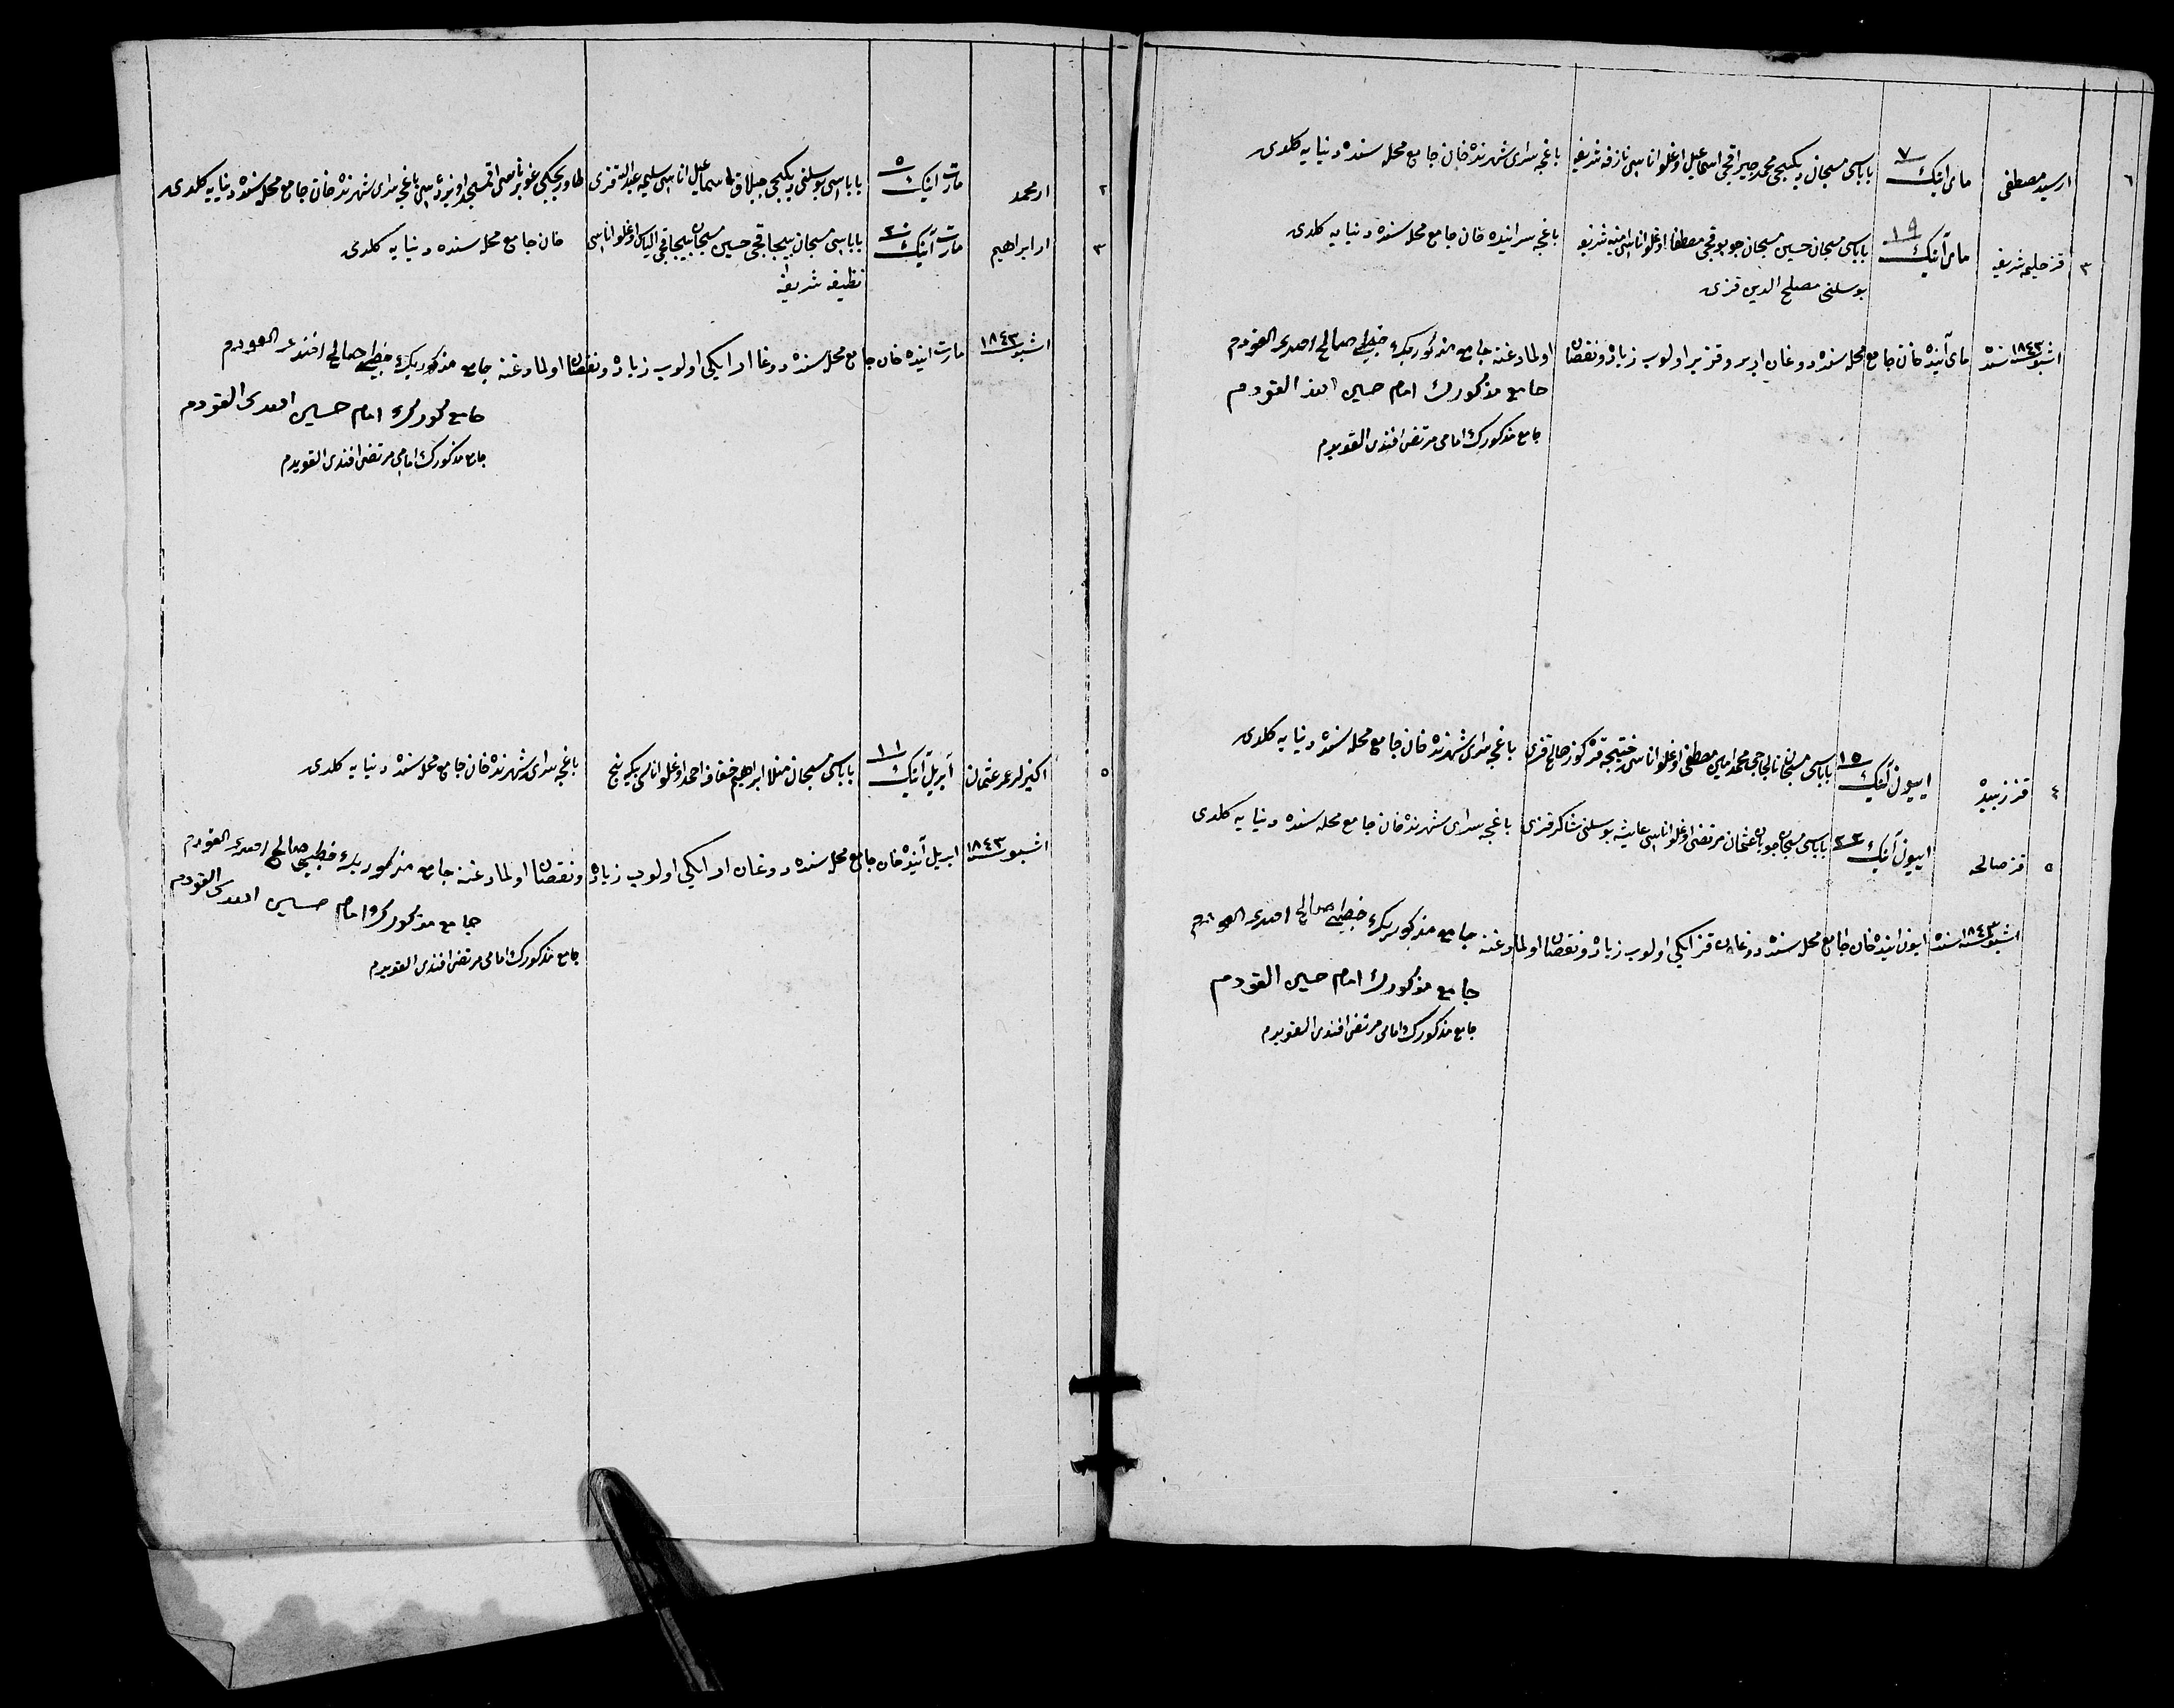 ٦
ار سید مصطفی
مای اینك ٧
باباسی مسجان دیكیجی محمد اسماعیل اوغلو اناسی نازفه شریفه
باغچه سرای شهرنده خان جامع محله سنده دنیایه كلدی
٣
قز حلیمه شریفه
مای آینك ١٩
باباسی مسجان حسین مسجان جوبوقجی مصطفا اوغلو اناسی امنه شریفه
بوسلنی مصلح الدین قزی
باغچه سراینده خان جامع محله سنده دنیایه كلدی
اشبو ١٨٤٣ سنده مای آینده خان جامع محله سنده دوغان ار بر و قز بر اولوب زیاده و نقصان اولمادغنه جامع مذكوریڭ خطیبی صالح افندی القویدم
جامع مذكورڭ امام حسین القودم
جامع مذكورڭ امامی مرتضی افندی القویدم
٤
قز زبیده
اییون آینك ١٥
باباسی مسجان محمد امین مصطفی اوغلو اناسی ختیجه صالح قزی
باغچه سرای شهرنده خان جامع محله سنده دنیایه كلدی
٥
قز صالحه
اییون آینك ٢٢
باباسی مسجان جوبان عثمان مرتضی اوغلو اناسی عایشه بوسلنی شاكر قزی
باغچه سرای شهرنده خان جامع محله سنده دنیایه كلدی
اشبو ١٨٤٣ سنده اییون اینده خان جامع محله سنده دوغان قز ایكی اولوب زیاده و نقصان اولمادغنه جامع مذكوریڭ خطیبی صالح افندی القویدم
جامع مذكورڭ امام حسین القودم
جامع مذكورڭ امامی مرتضی افندی القویدم
٢
ار محمد
مارت اینك ٥
باباسی بوسلنی دیكیجی اسماعیل اناسی سلیمه قزی
باغچه سرای شهرنده خان جامع محله سنده دنیایه كلدی
٣
ار ابراهیم
مارت آینك ٢٠
باباسی مسجان بیجاقجی حسین مسجان بیجاقجی الیاس اوغلو اناسی
نظیفه شریفه
خان جامع محله سنده دنیایه كلدی
اشبو ١٨٤٣ مارت اینده خان جامع محله سنده دوغان ار ایكی اولوب زیاده و نقصان اولمادغنه جامع مذكوریڭ خطیبی صالح افندی القویدم
جامع مذكورڭ امام حسین افندی القودم
جامع مذكورڭ امامی مرتضی افندی القویدم
٥
اكیزلر عمر عثمان
آبریل آینك ١١
باباسی مسجان منلا ابراهیم خفاف احمد اوغلو اناسی
باغچه سرای شهرنده خان جامع محله سنده دنیایه كلدی
اشبو ١٨٤٣ ابریل آینده خان جامع محله سنده دوغان ار ایكی اولوب زیاده و نقصان اولمادغنه جامع مذكوریڭ خطیبی صالح افندی القویدم
جامع مذكورڭ امام حسین افندی القودم
جامع مذكورڭ امامی مرتضی افندی القویدم